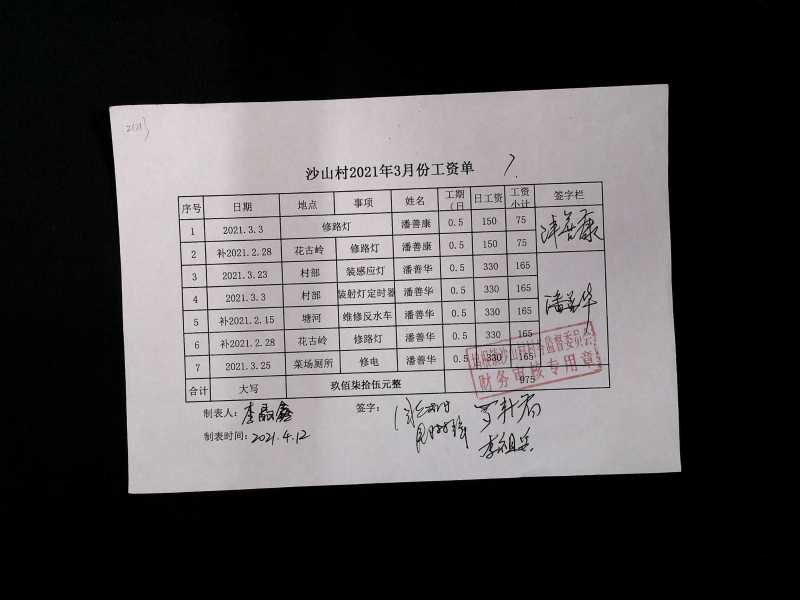 沙山村2021年3月份工资单
序号 日期 地点 事项 姓名 工期(日 日工资 工资小计 签字栏
1 2021.3.3 修路灯 潘善康 0.5 150 75 潘善康
2 补2021.2.28 花古岭 修路灯 潘善康 0.5 150 75
3 2021.3.23 村部 装感应灯 潘善华 0.5 330 165 潘善华
4 2021.3.3 村部 装射灯定时器 潘善华 0.5 330 165
5 补2021.2.15 塘河 维修反水车 潘善华 0.5 330 165
6 补2021.2.28 花古岭 修路灯 潘善华 0.5 330 165
7 2021.3.25 菜场厕所 修电 潘善华 0.5 330 165
合计 大写 玖佰柒拾伍元整 975
沙山村村务监督委员会
财务审核专用章
制表人：李晶鑫 签字：
制表时间：2021.4.12
李祖兵